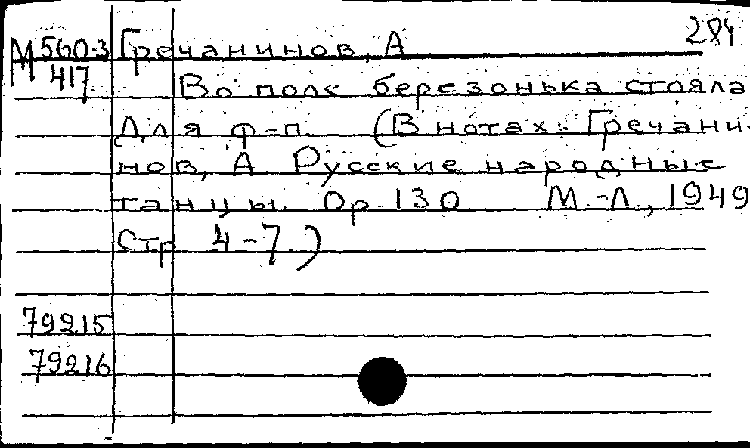 284
М 560-3 Гречанинов, А
417 Во поле березонька стояла
Для ф-п. (В нотах: Гречани-
нов, А Русские народные
танцы. Ор 130 М.-Л., 1949
Стр 4-7.)
79215
79216